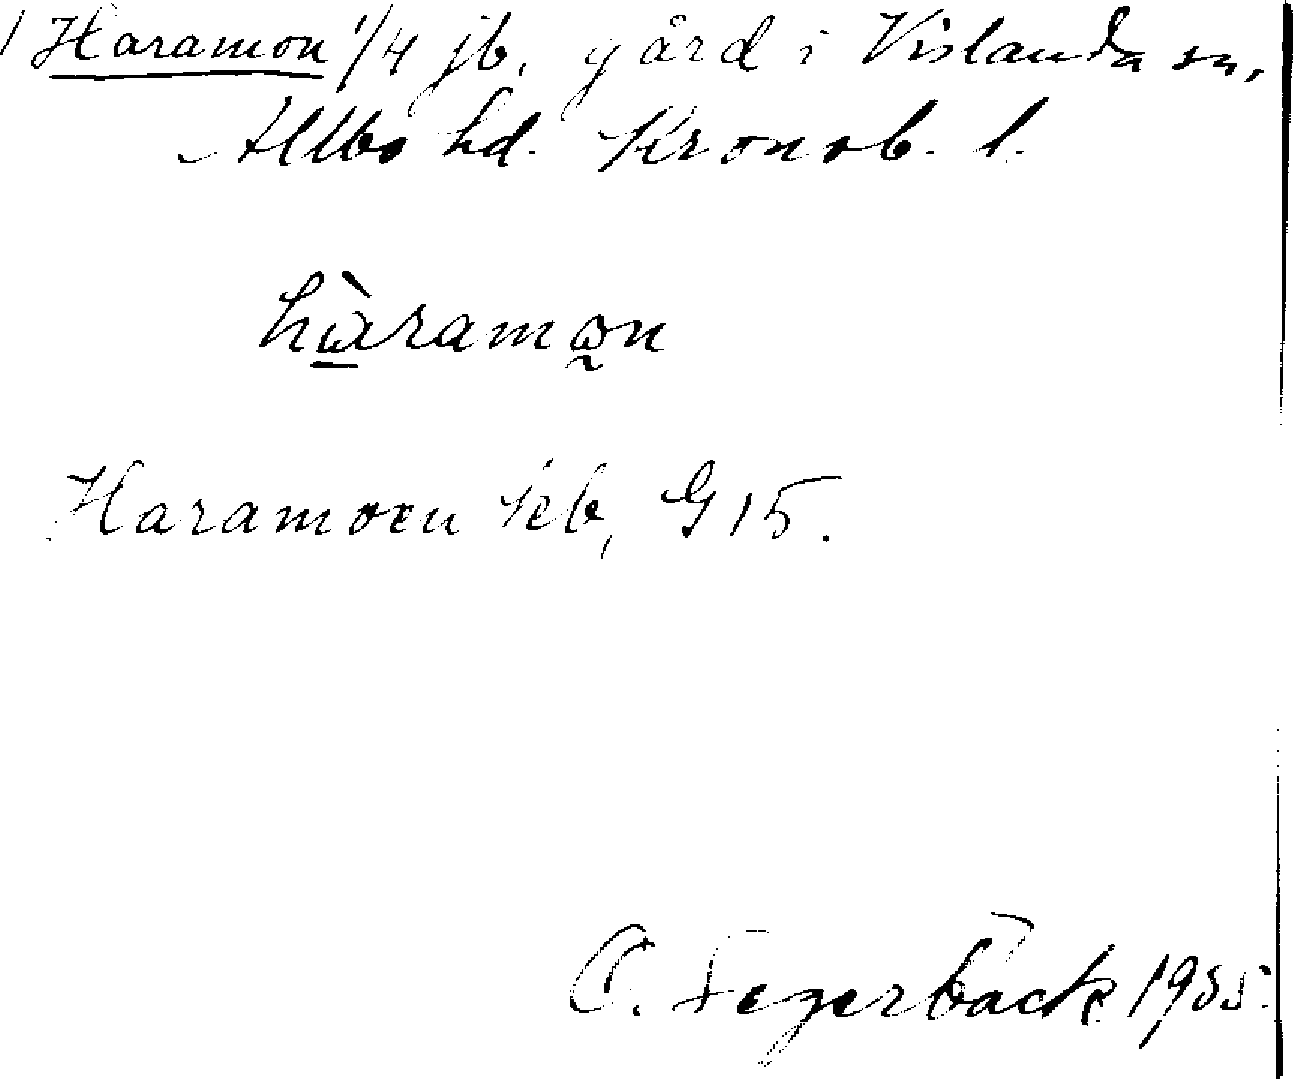 Haramon 1/4 jb. gård i Vislanda sn,
Allbo hd. Kronob. l.
hàramɷn
Haramoen jeb, G 15.
O. Fegerbäck 1935.